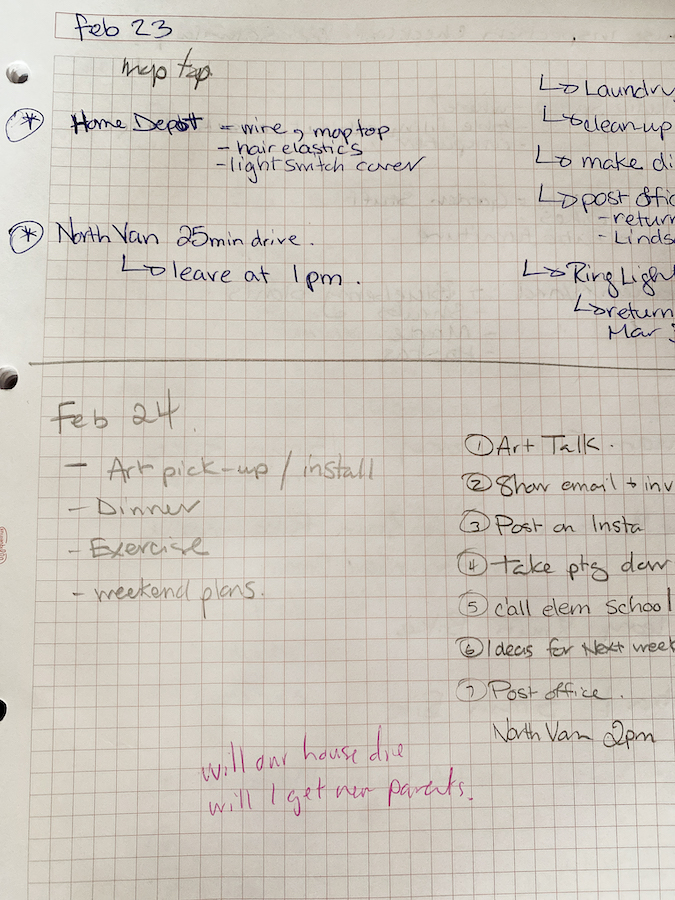 Feb 23
mop top
Home Depot - wire, mop top
- hair elastics
- light switch cover
North Van 25min drive.
↳ leave at 1pm.
↳ Laundry
↳ clean-up
↳ make di
↳ post offic
- return
- Linds
↳ Ring Light
↳ return
Mar
Feb 24
- Art pick-up / install
- Dinner
- Exercise
- weekend plans.
① Art Talk.
② Show email + inv
③ Post on Insta
④ take ptg down
⑤ call elem School
⑥ Ideas for Next week
⑦ Post office.
North Van 2pm
will our house die
will I get new parents.